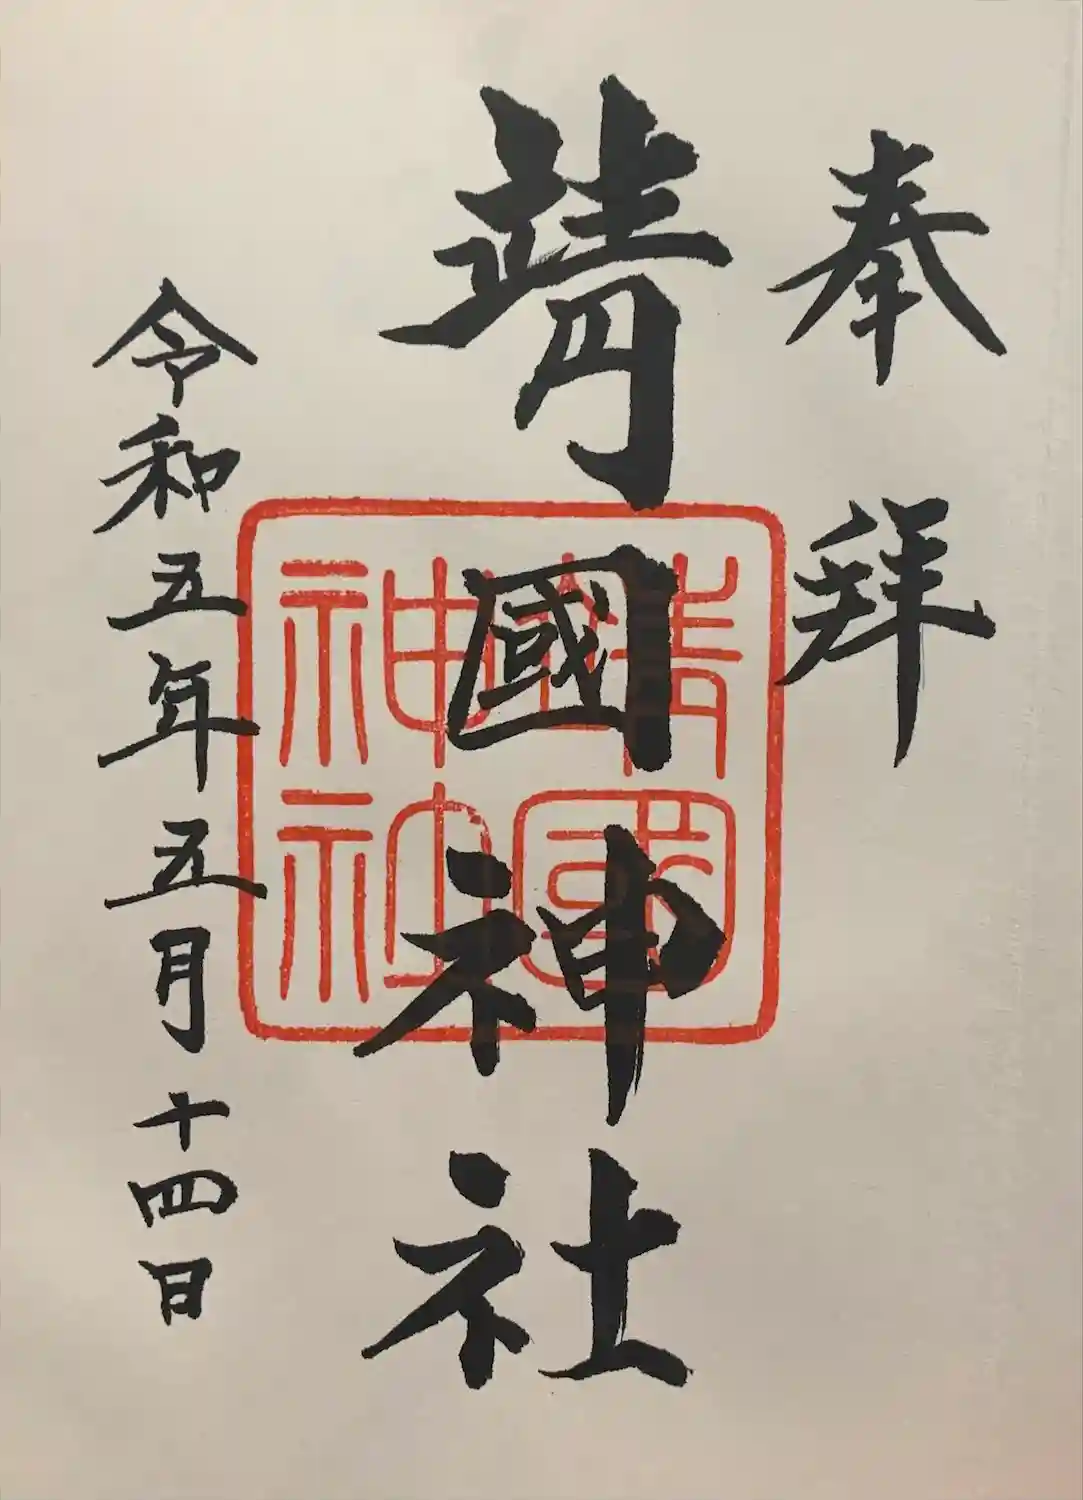 奉拜
靖國神社
靖國
神社
令和五年五月十四日